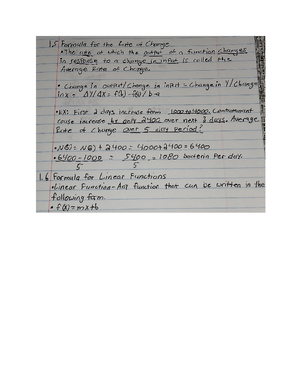 1.5 Formula for the Rate of Change
• The rate at which the output of a function changes
in response to a change in input is called the
Average Rate of Change.
• Change in output/Change is input = Change in Y/Change
in x = ΔY/ΔX =
• EX: First 2 days increase from 1000 to 4000. Contaminant
cause increase by only 2400 over next 3 days. Average
Rate of Change over 5 day period?
+ 2400 = 4000+2400 = 6400
• 6400-1000 = 5400 = 1080 bacteria per day
5 5
1.6 Formula for Linear Functions
• Linear Function - Any function that can be written in the
following form.
• f(x) = mx+b